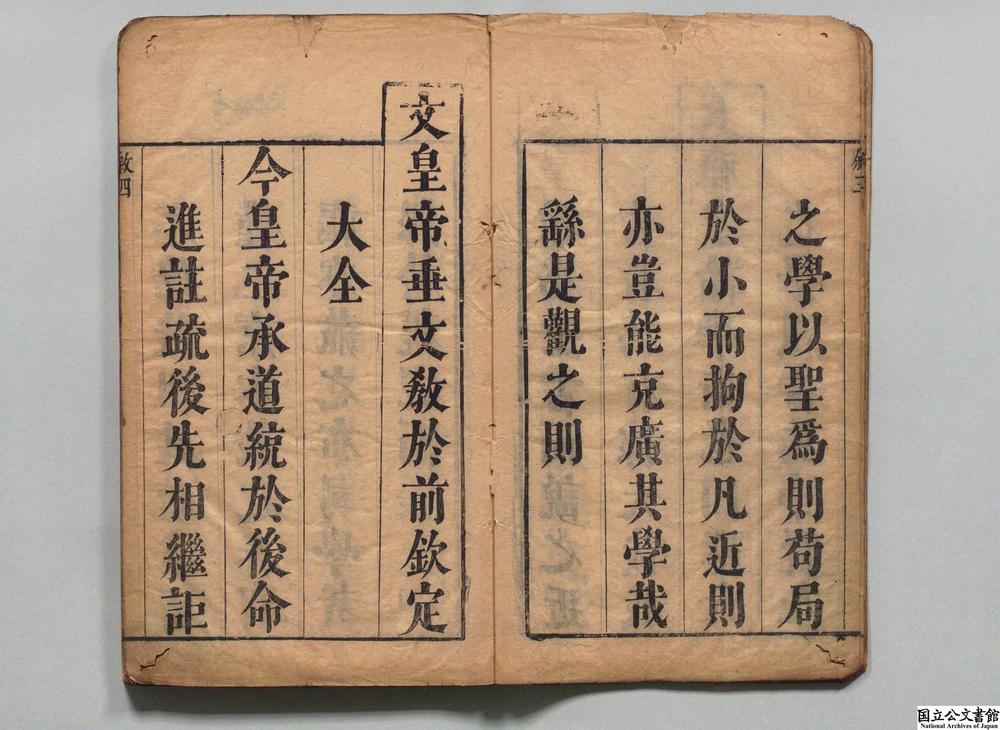 之學以聖爲則苟局
於小而拘於凡近則
亦豈能克廣其學哉
繇是觀之則
文皇帝垂文敎於前欽定
大全
今皇帝承道統於後命
進註疏後先相繼詎
国立公文書館
National Archives of Japan